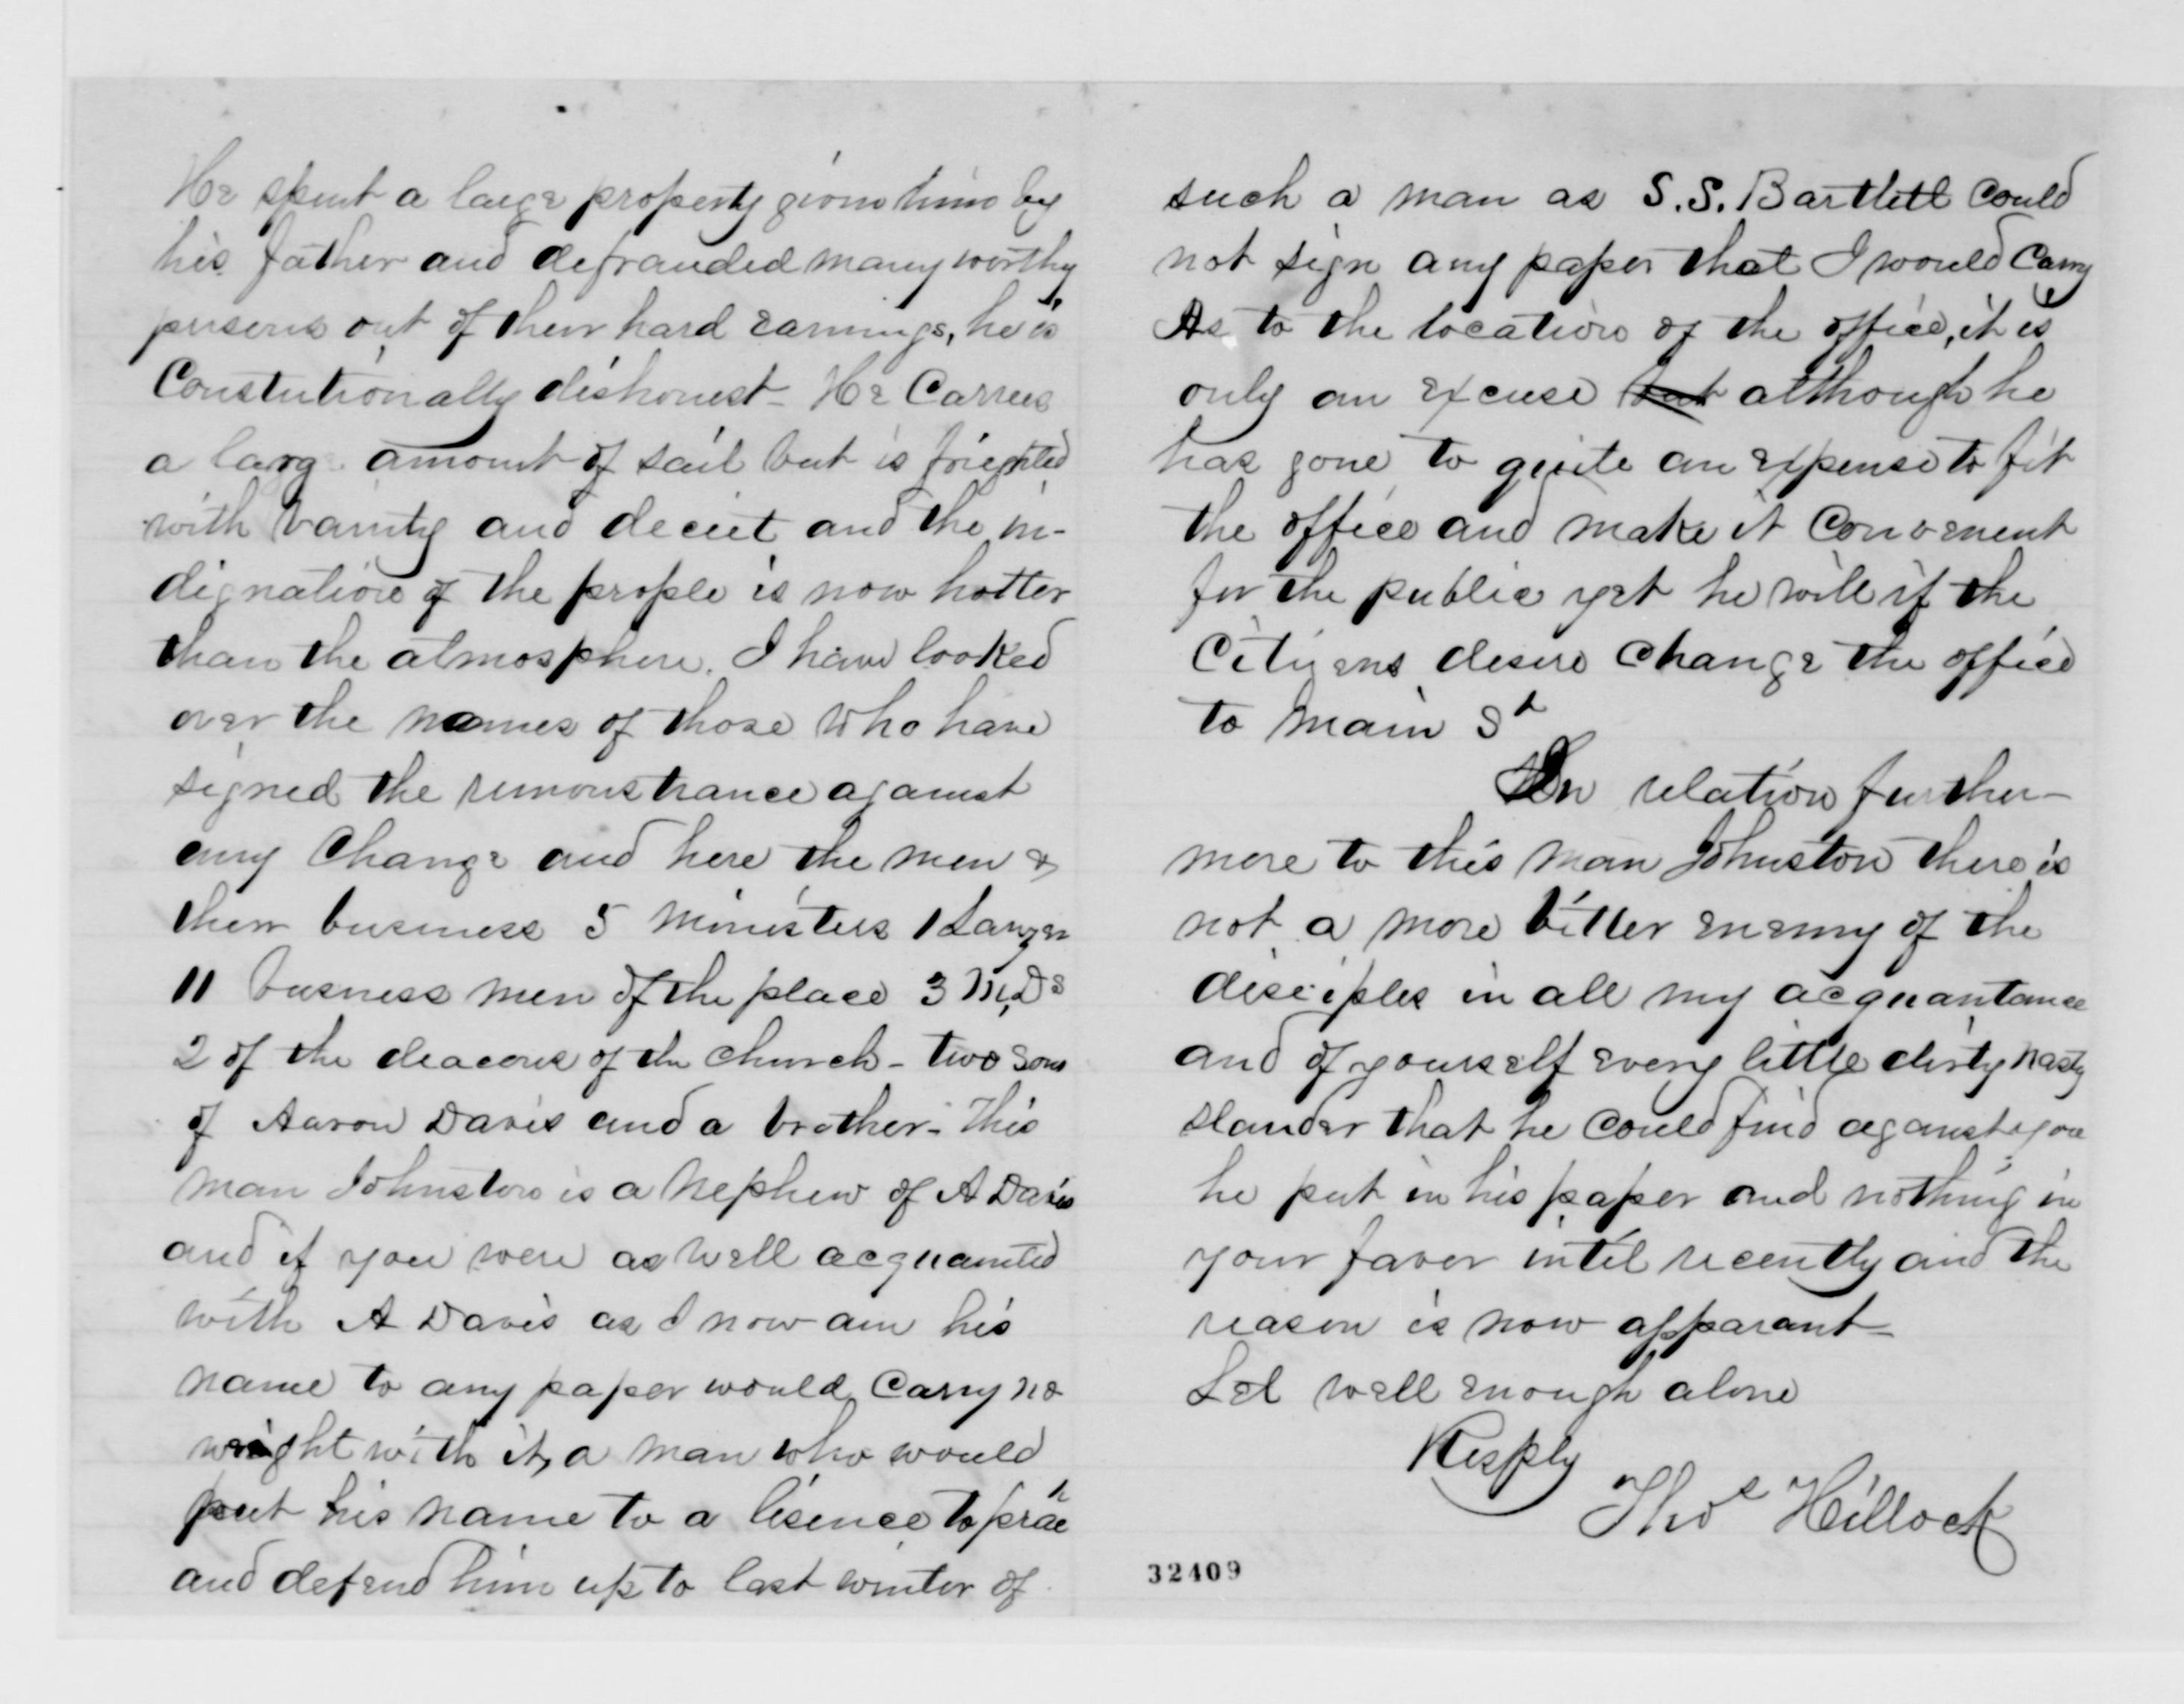 He spent a large property given him by
his father and defrauded many worthy
persons out of their hard earnings, he is
Constutionally dishonest - He Carries
a larg amount of sail but is frieghted
with vanity and deceit and the in-
dignation of the people is now hotter
than the atmosphere. I have looked
over the names of those who have
signed the remonstrance against
any Change and here the men &
their business 5 Ministers 1 Lawyer
11 busness men of the place 3 M,Ds
2 of the deacons of the church - two sons
of Aaron Davis and a brother - This
man Johnston is a Nephew of A Davis
and if you were as well acquainted
with A Davis as I now am his
name to any paper would carry no
weight with it, a man who would
put his name to a lisence to prac
and defend him up to last winter of
such a man as S.S. Bartlett Could
not sign any paper that I would Carry
As to the location of the office, it is
only an excuse but although he
has gone to quite an expense to fit
the office and make it convenient
for the public yet he will if the
Citizens desire Change the office
to Main St
In relation further-
more to this man Johnston there is
not a more bitter enemy of the
disciples in all my acquantance
and of yourself every little dirty nasty
slander that he could find against you
he put in his paper and nothing in
your favor intil recently and the
reason is now apparant -
Let well enough alone
Resply
Thos Hillock
32409